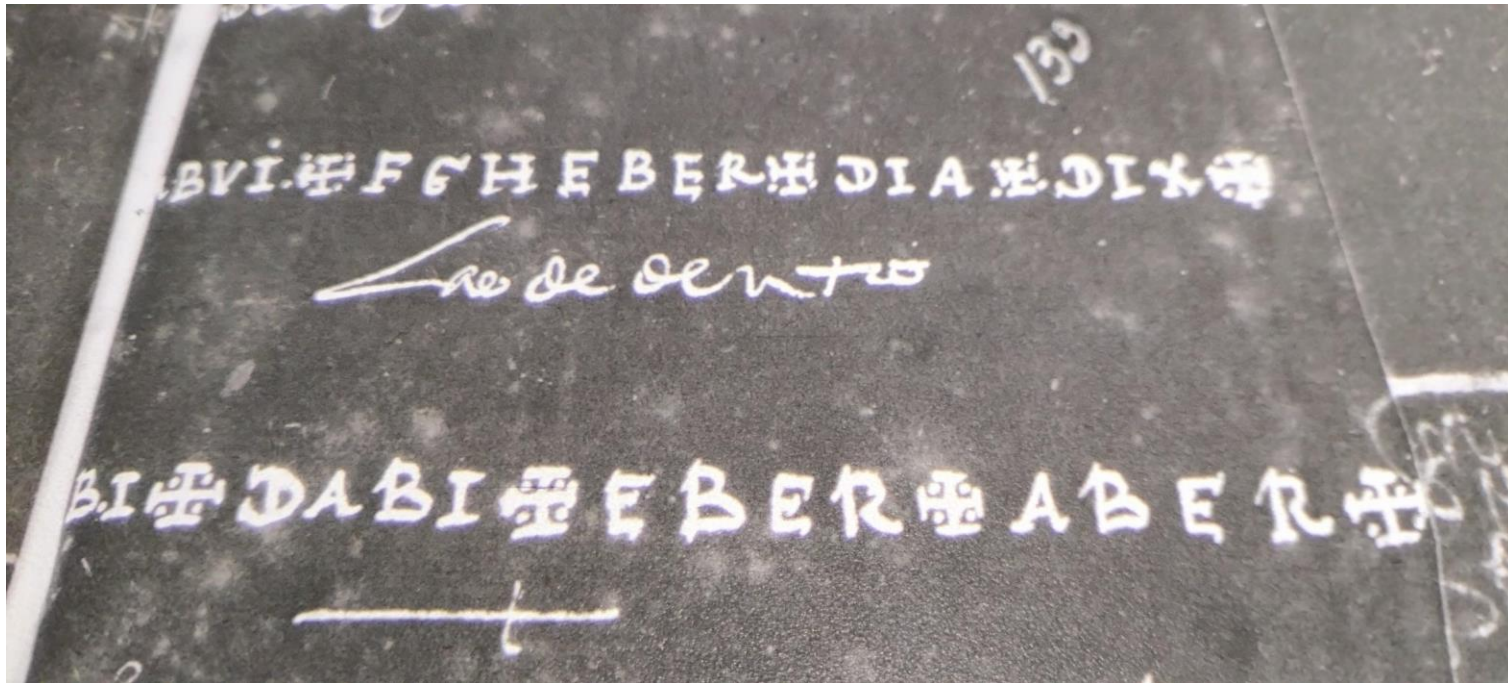 139
BVI ✠ F G H E B E R ✠ DIA ✠ DIX ✠
de dentro
BI ✠ DABI ✠ EBER ✠ ABER ✠